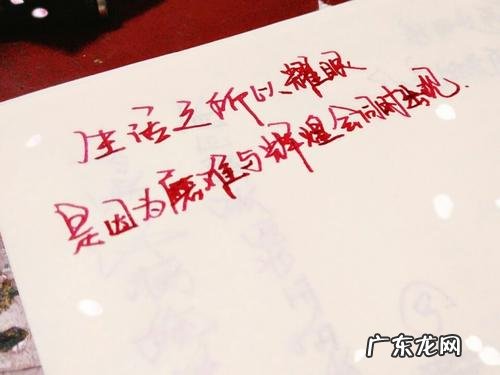 生活之所以耀眼
是因为磨难与辉煌会同时出现.
广东龙网